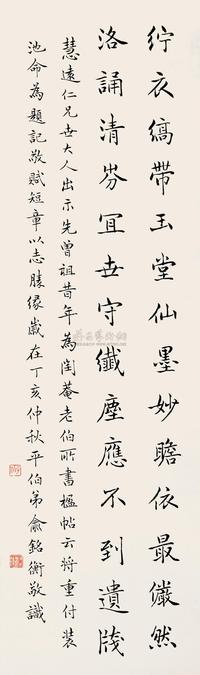 紵衣縞帶玉堂仙墨妙瞻依最儼然
洛誦清芬宜世守纖塵應不到遺牋
慧遠仁兄世大人出示先曾祖昔年為閏菴老伯所書楹帖云將重付裝
池命為題記敬賦短章以志勝緣歲在丁亥仲秋平伯弟俞銘衡敬識